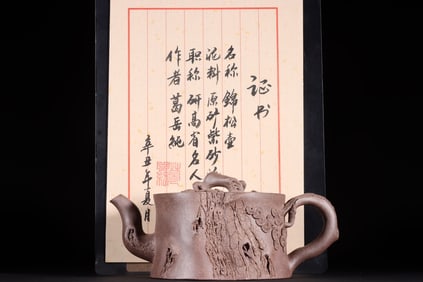 证书
名称 錦松壶
泥料 原矿紫砂
职称 研高省名人
作者 葛岳純
辛丑年夏月